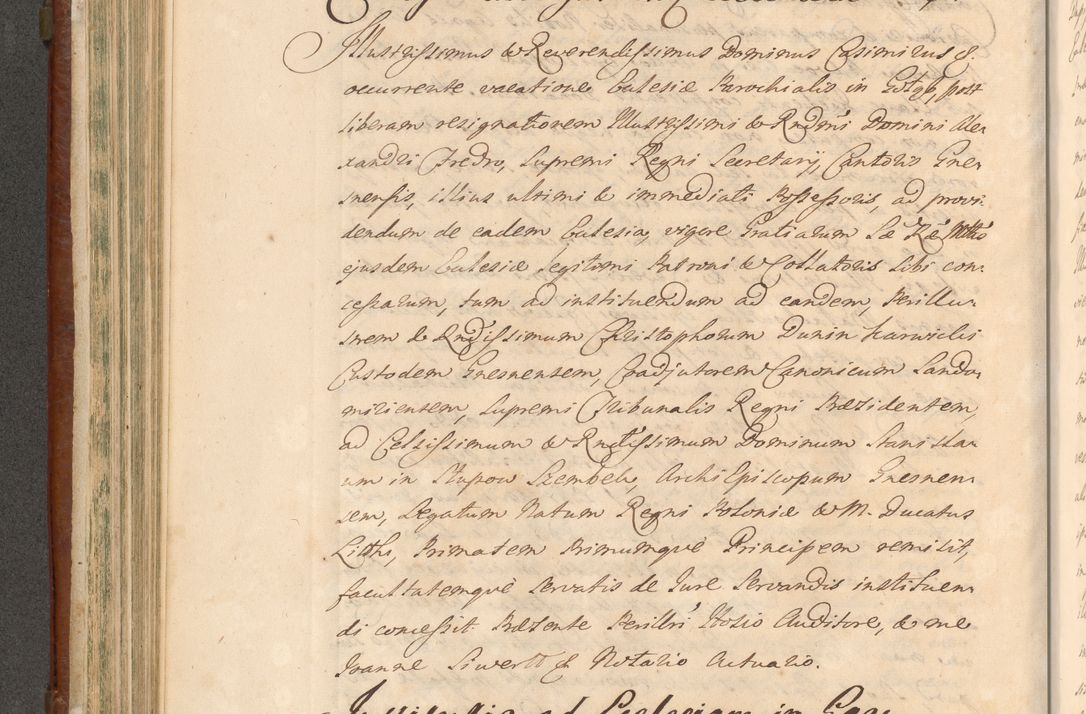 Illustrissimus & Reverendissimus Dominus Casimirus &.
occurrente vacatione Eclesiæ Parochialis in Gołąb, post
liberam resignationem Illustrissimi & Rndmi Domini Ale-
xandri Fredro, Supremi Regni Secretarij, Cantoris Gne-
snensis, illius ultimi & immediati Possessoris, ad provi-
dendum de eadem Eclesia, vigore Gratiarum Sæ Ræ Mttis
ejusdem Eclesiæ legitimi Patroni & Collatoris sibi con-
cessarum, tum ad instituendum ad eandem, Perillu-
strem & Rndissimum Christophorum Dunin Karwicki
Custodem Gnesnensem, Coadjutorem Canonicum Sando-
miriensem, Supremi Tribunalis Regni Præsidentem,
ad Celsissimum & Rndissimum Dominum Stanisla-
um in Słupow Szembek, Archi Episcopum Gnesnen-
sem, Legatum Natum Regni Poloniæ & M. Ducatus
Litthu, Primatem Primumque Principem remisit,
facultatemque servatis de Jure servandis instituen-
di concessit Præsente Perillri Hosio Auditore, & me
Joanne Siwertt & Notario Actuario.
Institutio ad Eclesiam in